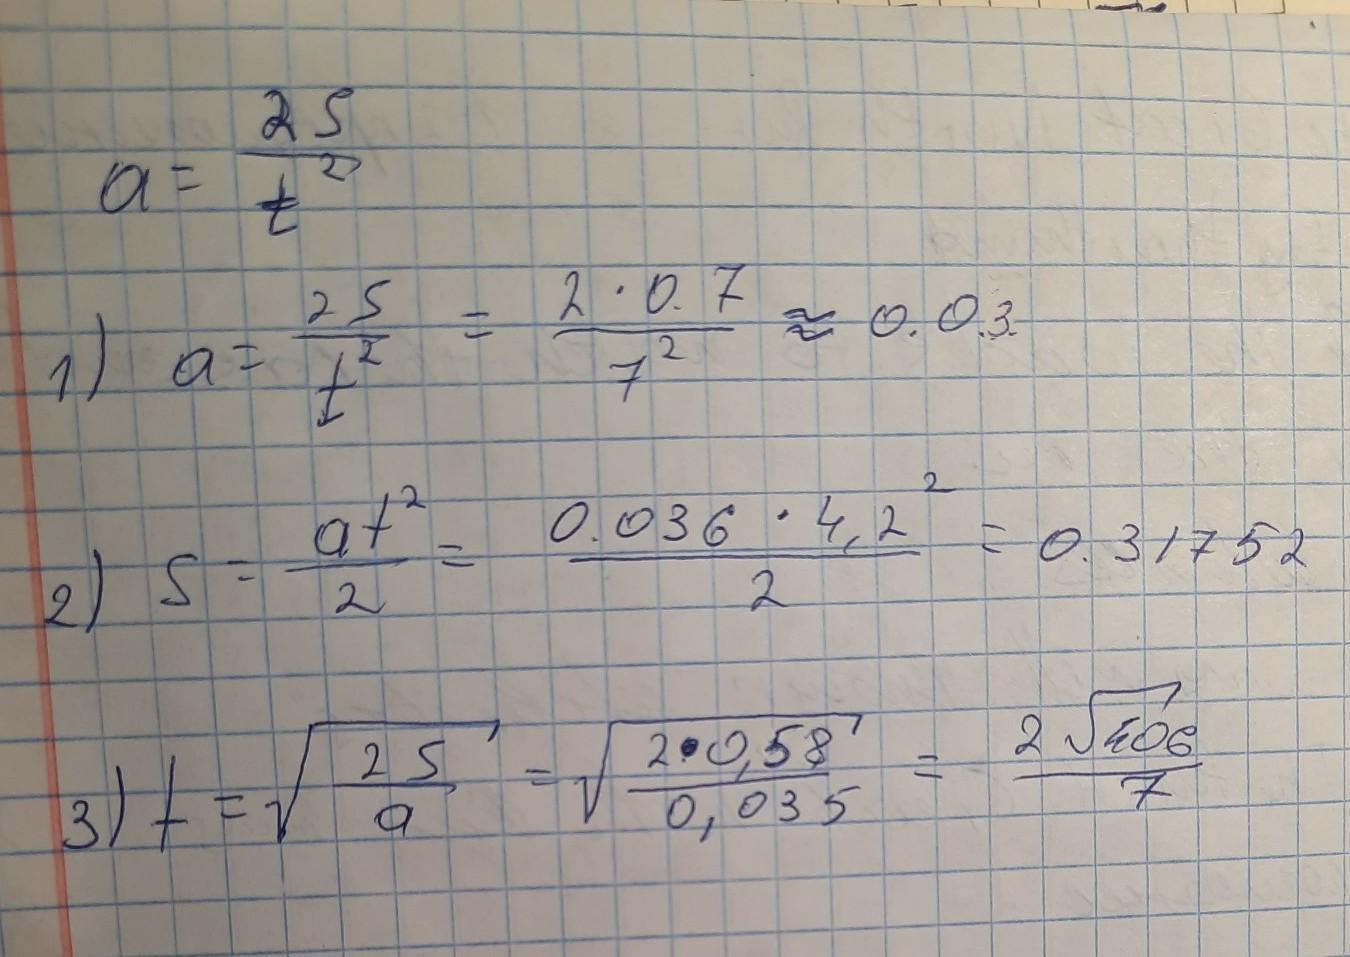 a = 2S / t²
1) a = 2S / t² = 2 · 0.7 / 7² ≈ 0.03
2) S = at² / 2 = 0.036 · 4,2² / 2 = 0.31752
3) t = √(2S / a) = √(2·0,58 / 0,035) = 2√406 / 7